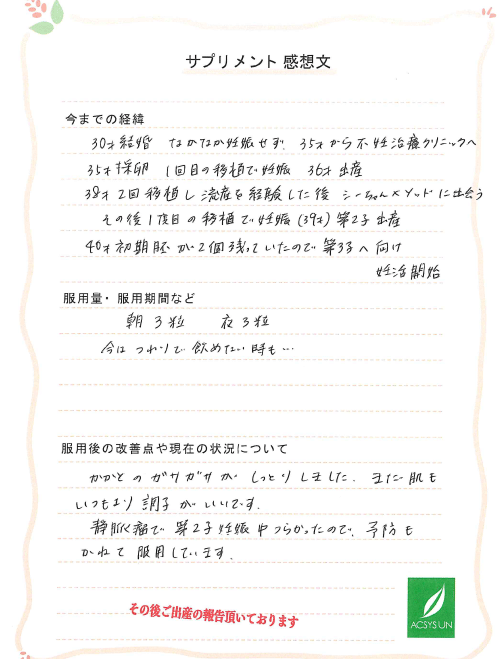 サプリメント 感想文
今までの経緯
30才 結婚 なかなか妊娠せず、35才から不妊治療クリニックへ
35才 採卵 1回目の移植で妊娠 36才 出産
38才 2回移植し 流産を経験した後 シーちゃんメソッドに出会う
その後 1度目の移植で妊娠(39才) 第2子 出産
40才 初期胚が2個残っていたので 第3子へ向け
妊活開始
服用量・服用期間など
朝 3粒 夜 3粒
今は つわりで 飲めない時も…
服用後の改善点や現在の状況について
かかとのガサガサが しっとりしました. また 肌も
いつもより 調子がいいです.
静脈瘤で 第2子妊娠中つらかったので、予防も
かねて 服用しています.
その後ご出産の報告頂いております
ACSYSUN